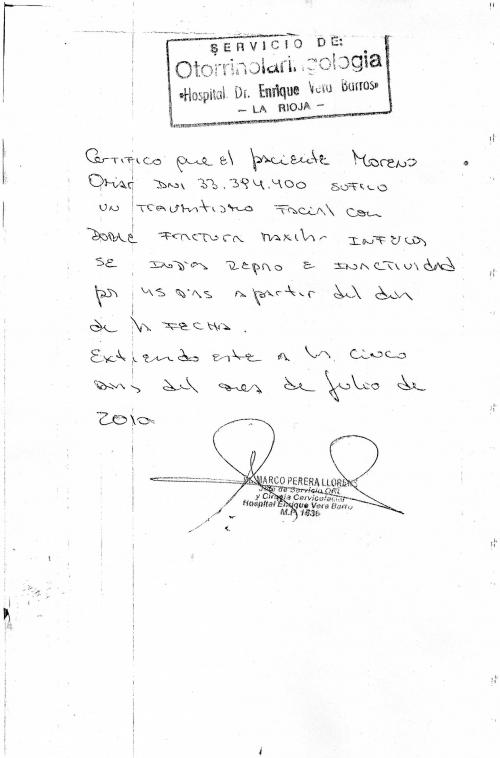 SERVICIO DE:
Otorrinolaringologia
"Hospital Dr. Enrique Vera Barros"
- LA RIOJA -
Certifico que el paciente Moreno
Omar DNI 33.394.400 sufrio
un traumatismo facial con
doble fractura maxilar inferior
se indica reposo e inactividad
por 45 dias a partir del dia
de la fecha.
Extiendo este a los cinco
dias del mes de Julio de
2010
Dr. MARCO PERERA LLORENS
Jefe de Servicio ORL
y Cirugia Cervicofacial
Hospital Enrique Vera Barro
M.P. 1636